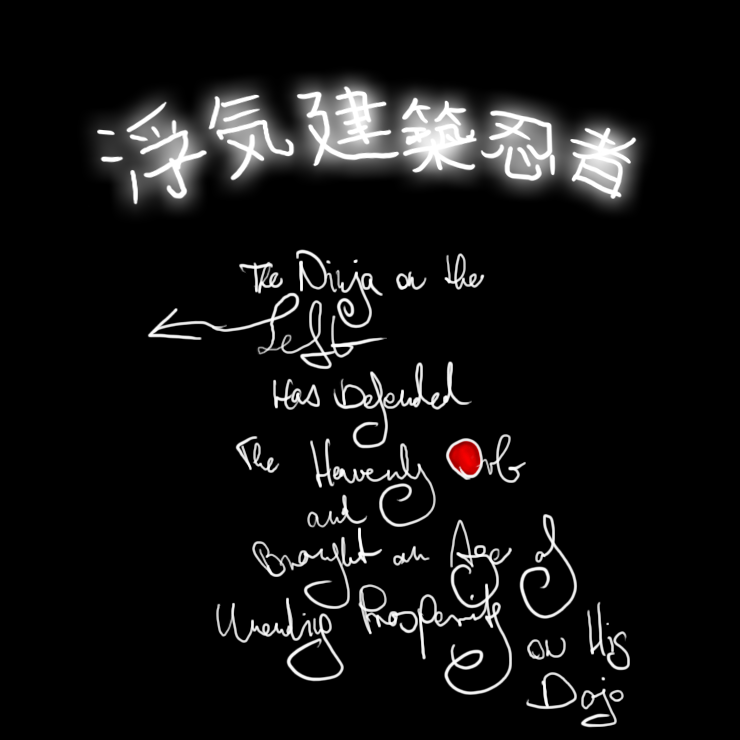 浮気建築忍者
The Ninja on the
Left
Has Defended
The Heavenly Orb
and
Brought an Age of
Unending Prosperity on His
Dojo